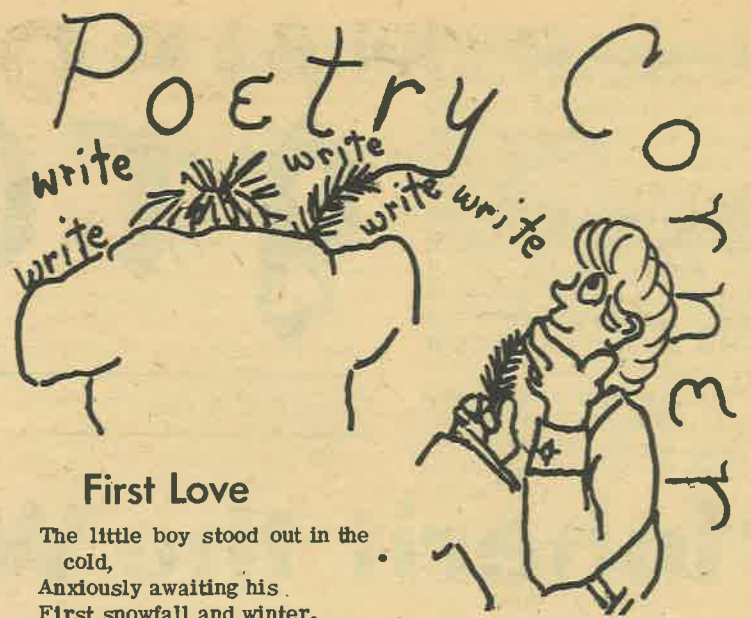 Poetry Corner
write
write
write
write
write
First Love
The little boy stood out in the
cold,
Anxiously awaiting his
First snowfall and winter.